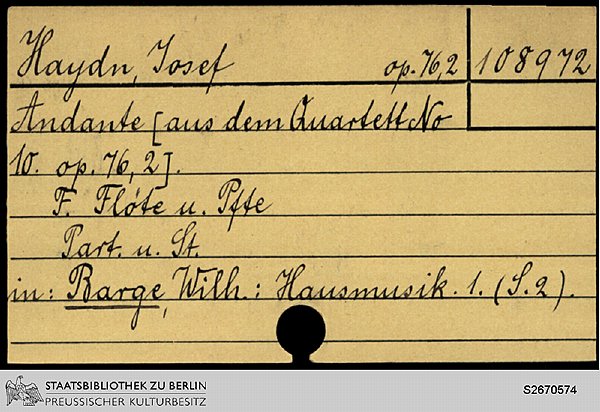 Haydn, Josef op. 76,2 108972
Andante [aus dem Quartett No
10. op. 76, 2].
F. Flöte u. Pfte
Part. u. St.
in: Barge, Wilh.: Hausmusik. 1. (S. 2).
STAATSBIBLIOTHEK ZU BERLIN
PREUSSISCHER KULTURBESITZ
S2670574